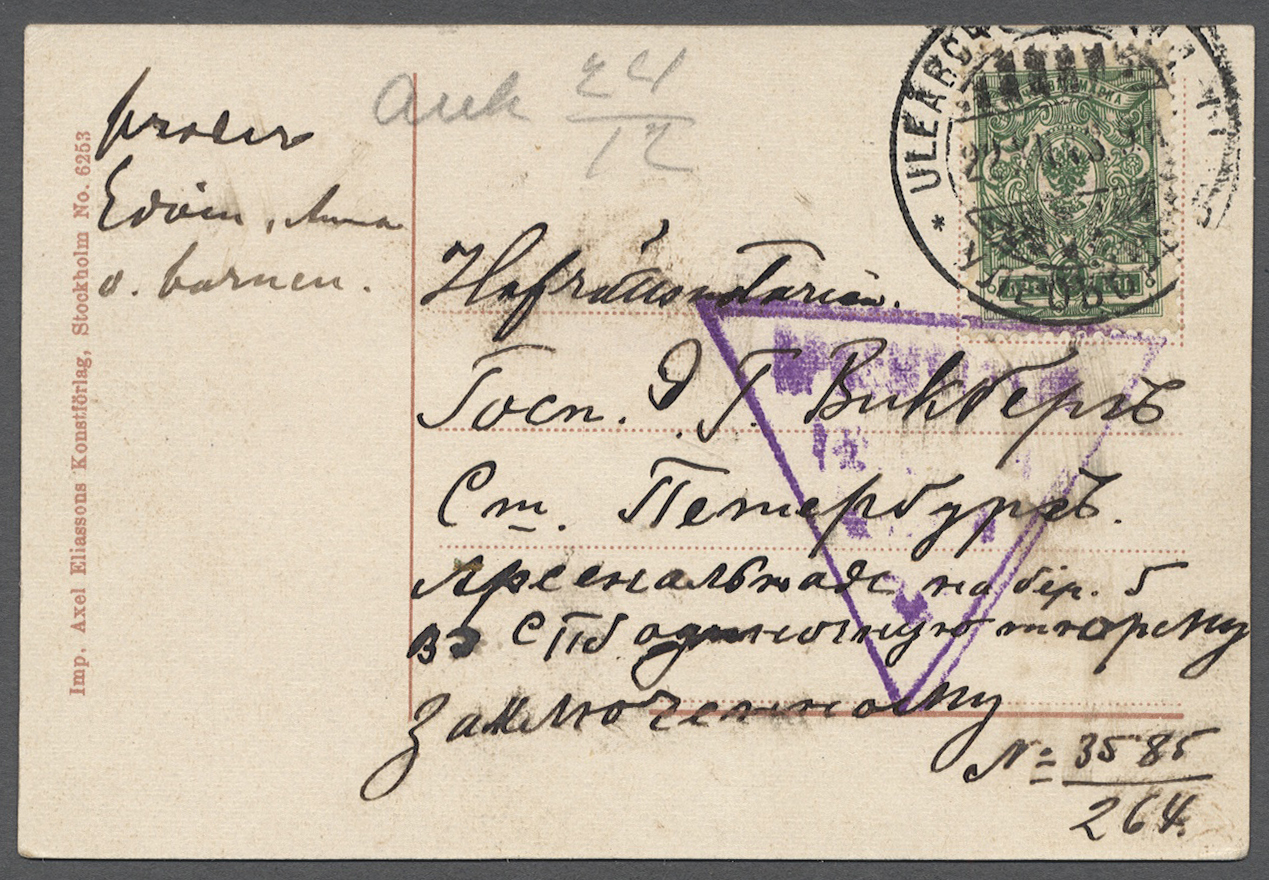 Imp. Axel Eliassons Konstförlag, Stockholm No. 6253
Edvin, Anna
o. barnen.
ank 24/12
ULEÅBORG
Hofrättsnotarien.
Госп. Э. Г. Викбергъ
Ст. Петербургъ.
Арсенальная набер. 5
въ СПб одиночную тюрьму
Заключенному
№ 3585
264.